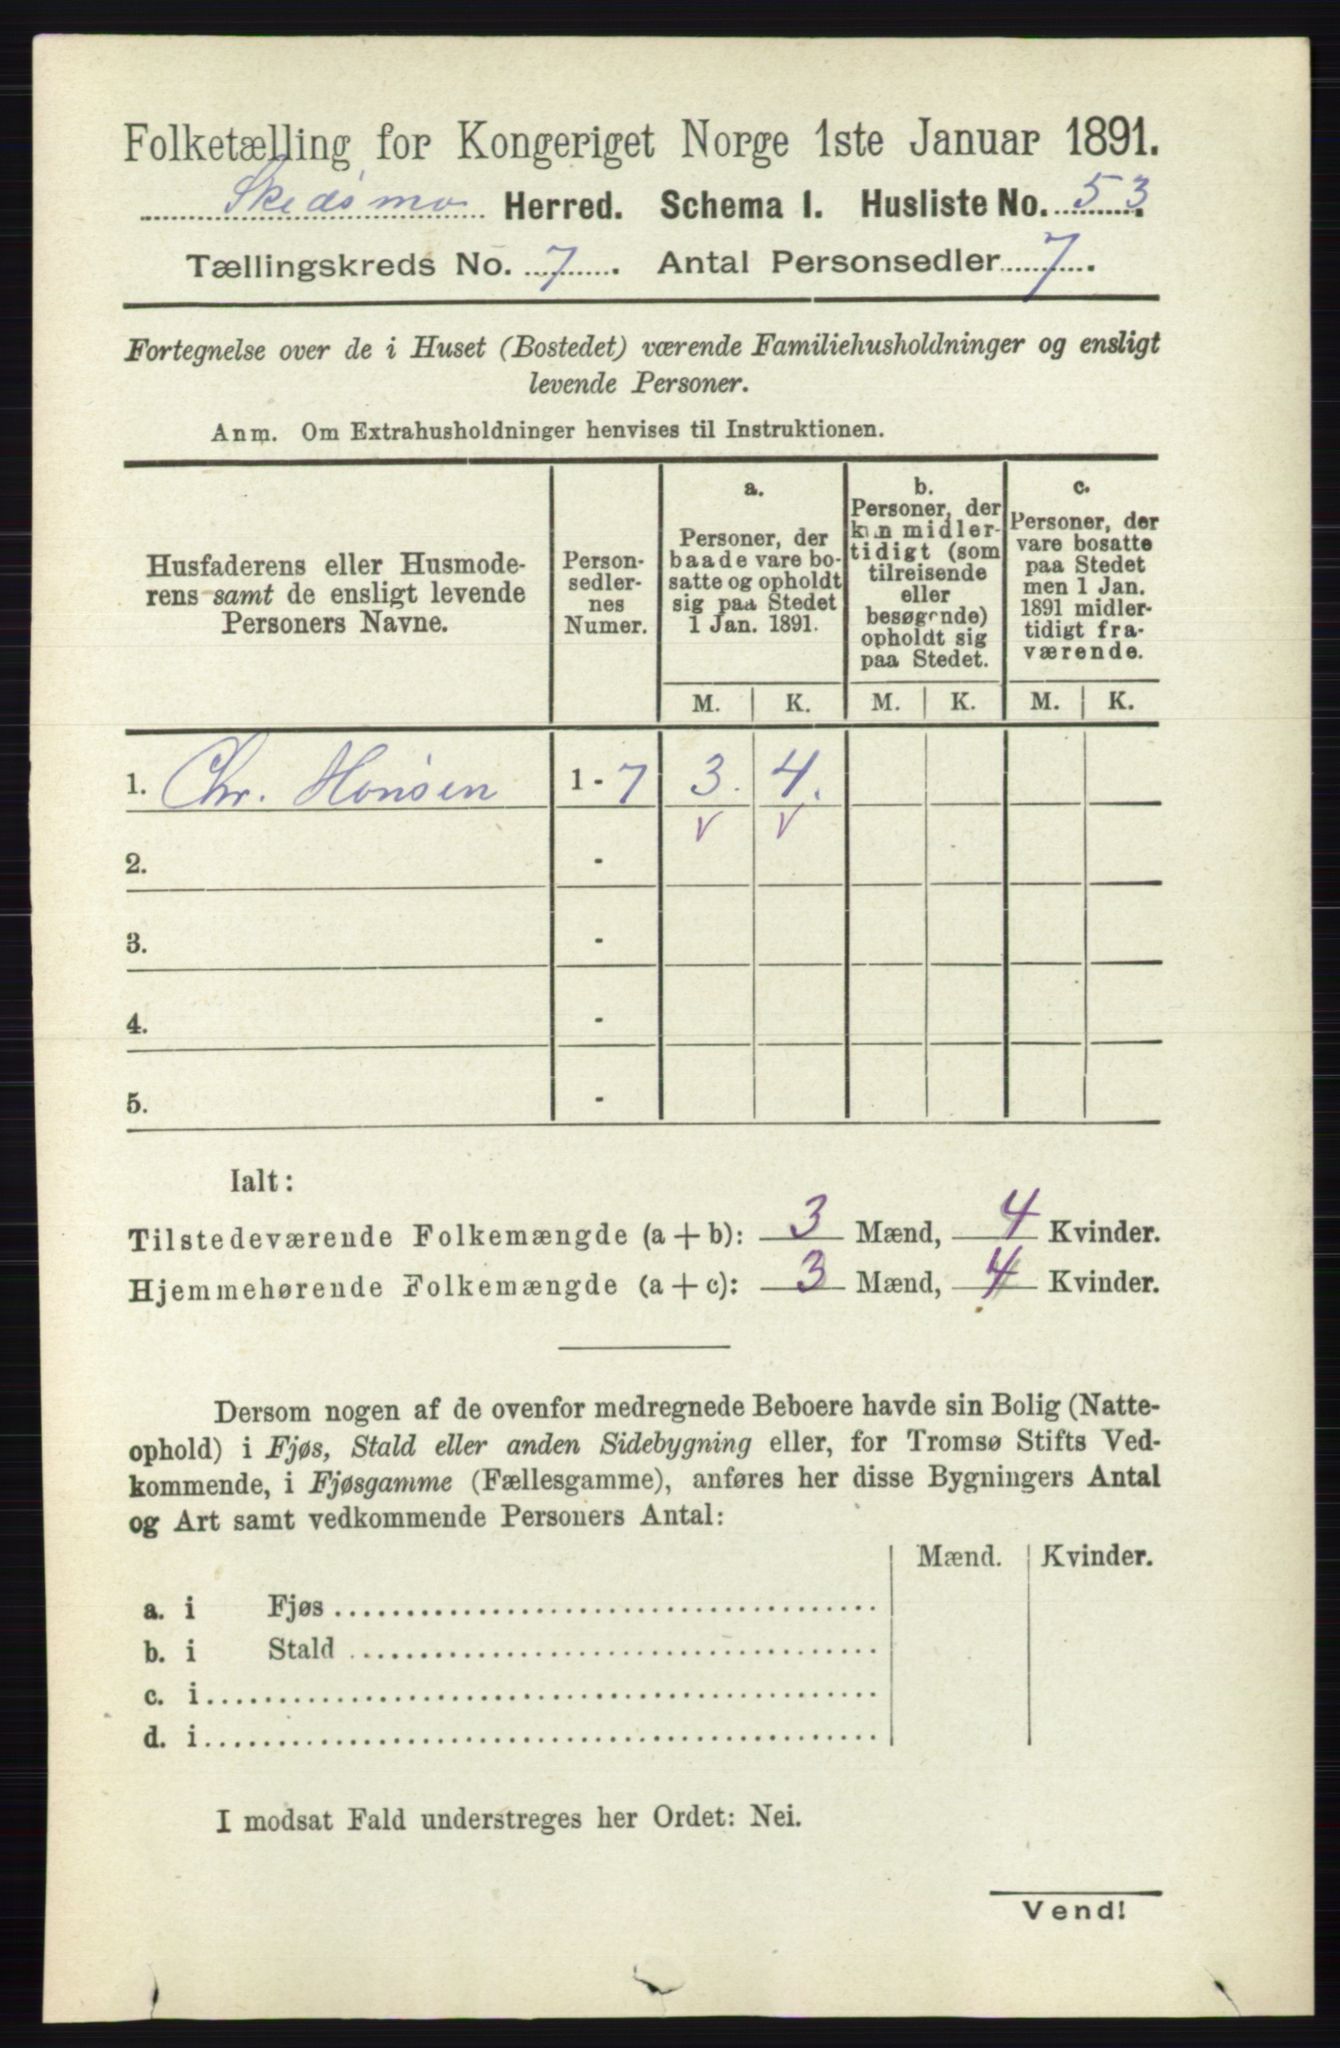 Folketælling for Kongeriget Norge 1ste Januar 1891.
Skedsmo Herred. Schema 1. Husliste No. 53.
Tællingskreds No. 7. Antal Personsedler 7.
Fortegnelse over de i Huset (Bostedet) værende Familiehusholdninger og ensligt
levende Personer.
Anm. Om Extrahusholdninger henvises til Instruktionen.
Husfaderens eller Husmode-
rens samt de ensligt levende
Personers Navne.
Person-
sedler-
nes
Numer.
a.
Personer, der
baade vare bo-
satte og opholdt
sig paa Stedet
1 Jan. 1891.
b.
Personer, der
kun midler-
tidigt (som
tilreisende
eller
besøgende)
opholdt sig
paa Stedet.
c.
Personer, der
vare bosatte
paa Stedet
men 1 Jan.
1891 midler-
tidigt fra-
værende.
M. K. M. K. M. K.
1. Chr. Hansen 1 - 7 3. 4.
v v
2. -
3. -
4. -
5. -
Ialt:
Tilstedeværende Folkemængde (a + b): 3 Mænd, 4 Kvinder.
Hjemmehørende Folkemængde (a + c): 3 Mænd, 4 Kvinder.
Dersom nogen af de ovenfor medregnede Beboere havde sin Bolig (Natte-
ophold) i Fjøs, Stald eller anden Sidebygning eller, for Tromsø Stifts Ved-
kommende, i Fjøsgamme (Fællesgamme), anføres her disse Bygningers Antal
og Art samt vedkommende Personers Antal:
Mænd. Kvinder.
a. i Fjøs
b. i Stald
c. i
d. i
I modsat Fald understreges her Ordet: Nei.
Vend!